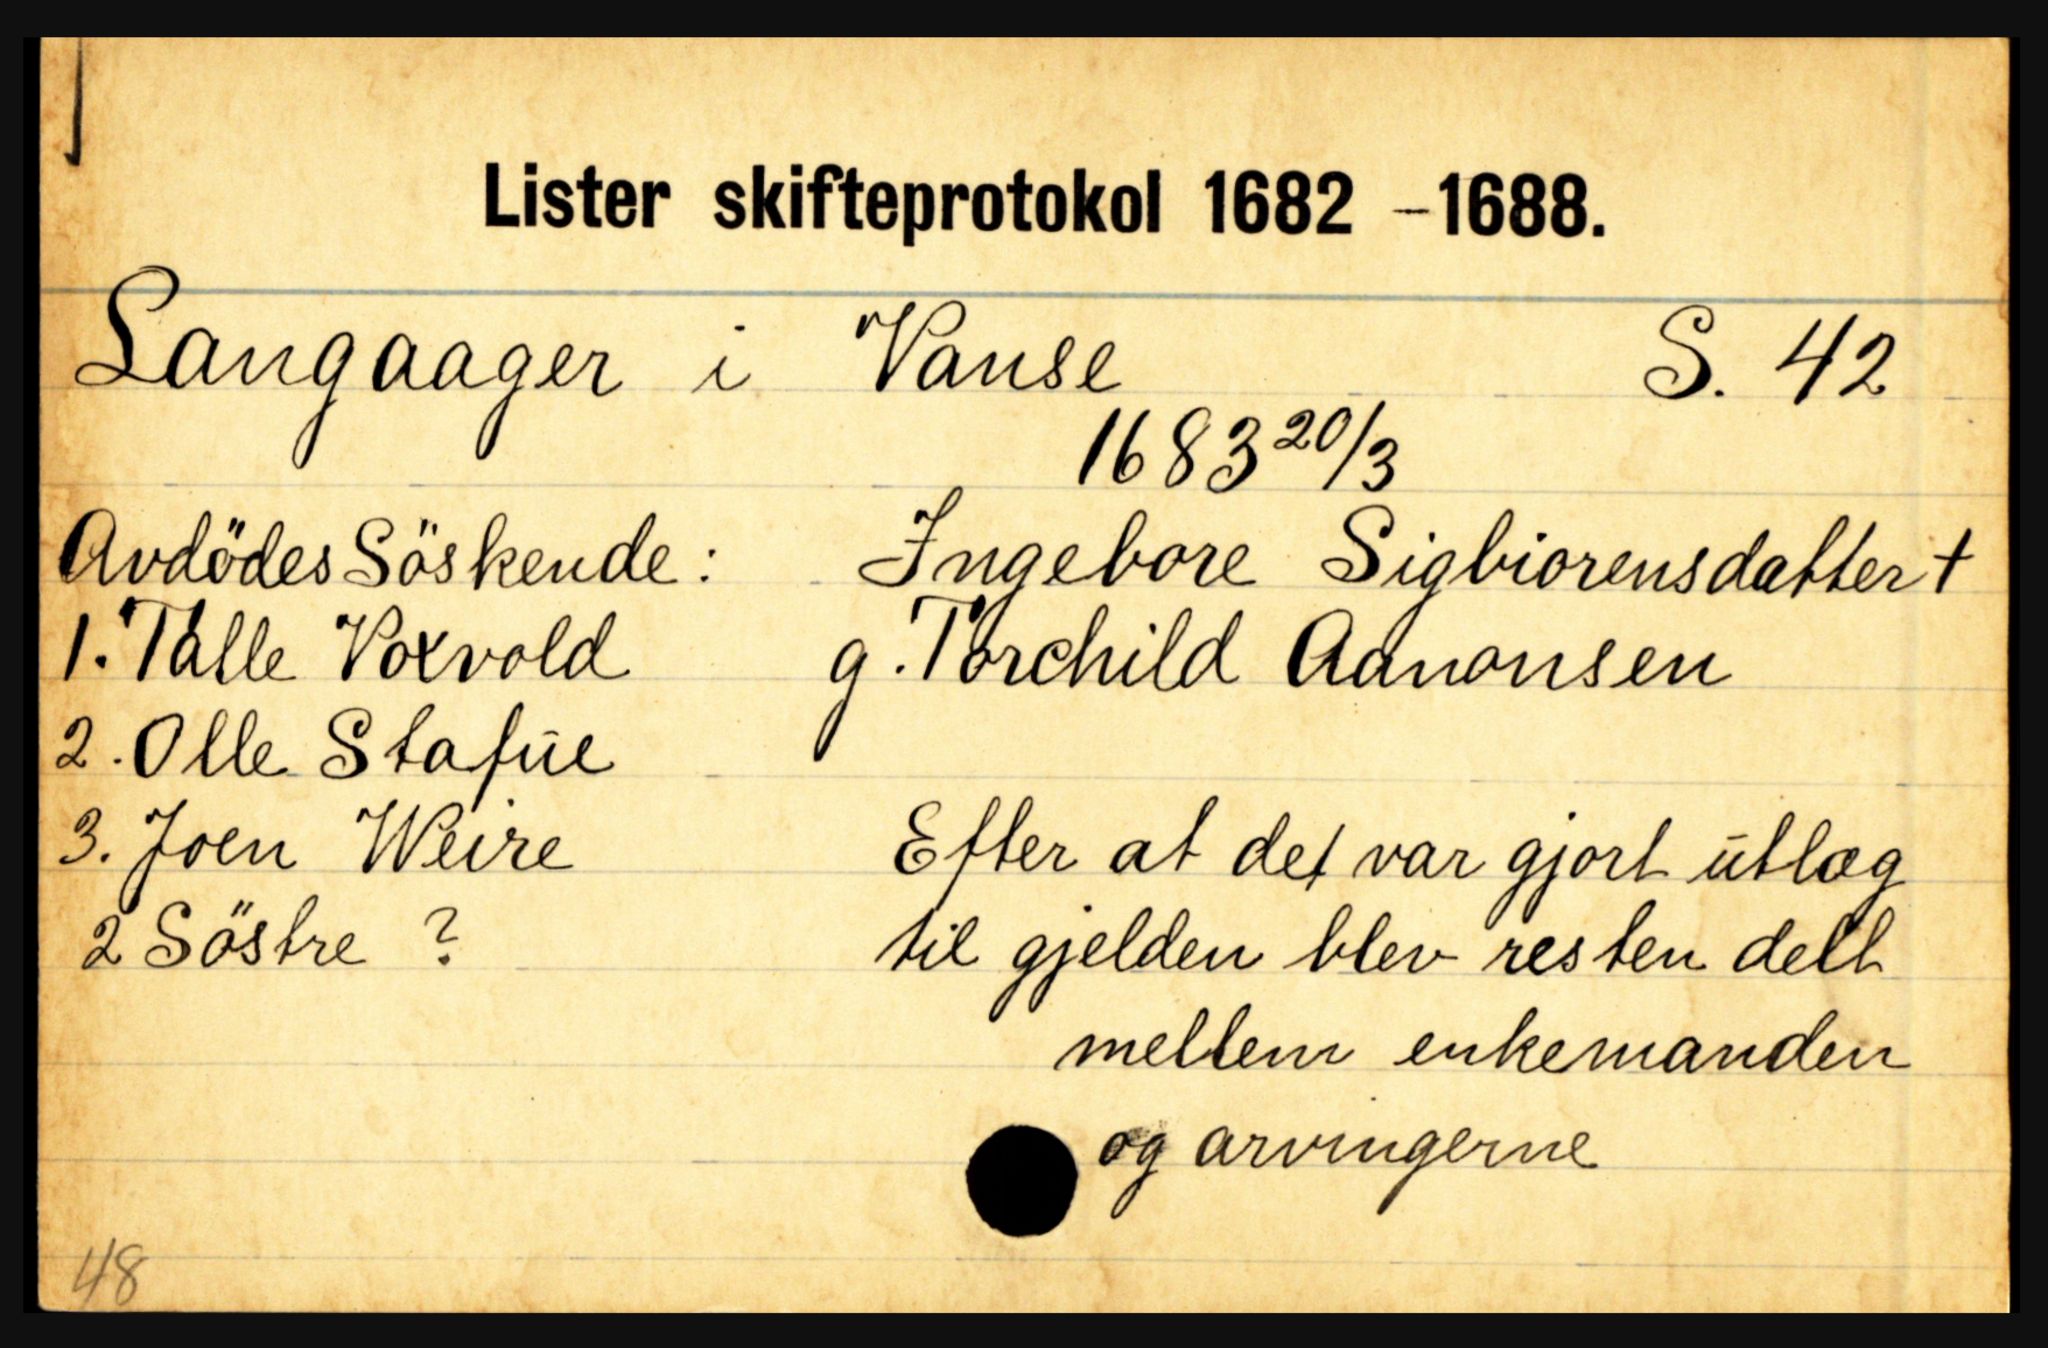 Lister skifteprotokol 1682 - 1688.
Langaager i Vanse S. 42
1683 20/3
Avdödes Söskende: Ingebore Sigbiorensdatter †
1. Talle Voxvold g. Torchild Aanonsen
2. Olle Stafue
3. Joen Weire Efter at det var gjort utlæg
2 Söstre ? til gjelden blev resten delt
mellem enkemanden
og arvingerne
48